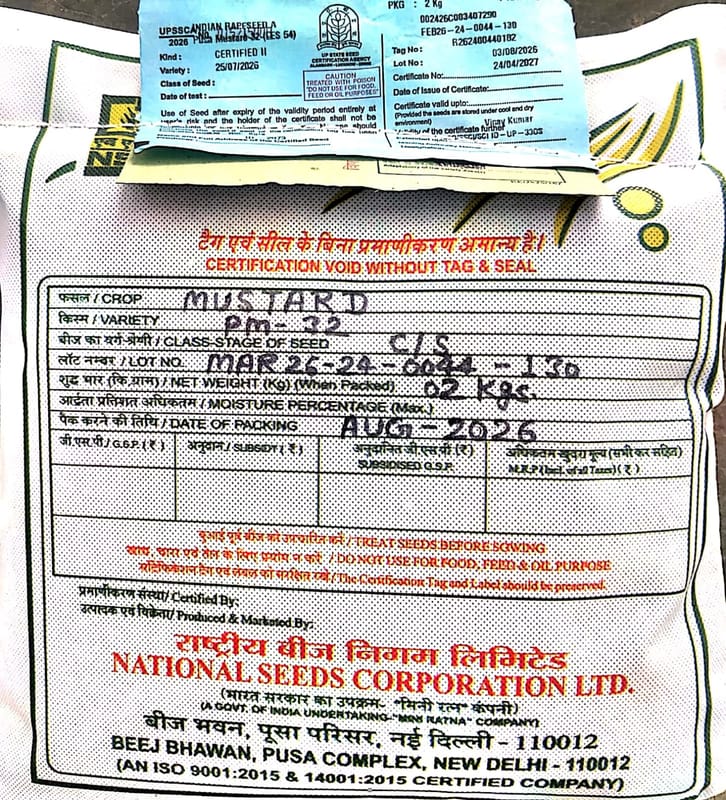 PKG : 2 Kg
002426C003407290
UPSSCANDIAN RAPESEED,A
FEB26-24-0044-130
2026 Pusa Mustard 32 (LES 54)
Tag No : R262400440182
Kind : CERTIFIED II
03/08/2026
Variety : 25/07/2026
Lot No : 24/04/2027
Class of Seed :
Certificate No:
Date of test :
Date of Issue of Certificate:
UP STATE SEED
CERTIFICATION AGENCY
CAUTION
TREATED WITH POISON
"DO NOT USE FOR FOOD,
FEED OR OIL PURPOSES"
Certificate valid upto:
(Provided the seeds are stored under cool and dry
environment)
Vijay Kumar
Use of Seed after expiry of the validity period entirely at
user's risk and the holder of the certificate shall not be
should
Validity of the certificate further
ID-UP-330S
टैग एवं सील के बिना प्रमाणीकरण अमान्य है।
CERTIFICATION VOID WITHOUT TAG & SEAL
फसल / CROP MUSTARD
किस्म / VARIETY PM-32
बीज का वर्ग-श्रेणी / CLASS-STAGE OF SEED C/S
लॉट नम्बर / LOT NO. MAR26-24-0044-130
शुद्ध भार (कि.ग्राम) / NET WEIGHT (Kg) (When Packed) 02 Kgs.
आर्द्रता प्रतिशत अधिकतम / MOISTURE PERCENTAGE (Max.)
पैक करने की तिथि / DATE OF PACKING AUG-2026
जी.एस.पी. / G.S.P. (₹) अनुदान / SUBSIDY (₹) अनुदानित जी.एस.पी (₹) अधिकतम खुदरा मूल्य (सभी कर सहित)
SUBSIDISED G.S.P. M.R.P (Incl. of all Taxes) (₹)
बुआई पूर्व बीज को उपचारित करें / TREAT SEEDS BEFORE SOWING
खाद्य, चारा एवं तेल के लिए प्रयोग न करें / DO NOT USE FOR FOOD, FEED & OIL PURPOSE
सर्टिफिकेशन टैग एवं लेबल को सुरक्षित रखें / The Certification Tag and Label should be preserved.
प्रमाणीकरण संस्था/ Certified By:
उत्पादक एवं विक्रेता/ Produced & Marketed By:
राष्ट्रीय बीज निगम लिमिटेड
NATIONAL SEEDS CORPORATION LTD.
(भारत सरकार का उपक्रम- "मिनी रत्न" कंपनी)
(A GOVT. OF INDIA UNDERTAKING-"MINI RATNA" COMPANY)
बीज भवन, पूसा परिसर, नई दिल्ली - 110012
BEEJ BHAWAN, PUSA COMPLEX, NEW DELHI - 110012
(AN ISO 9001:2015 & 14001:2015 CERTIFIED COMPANY)